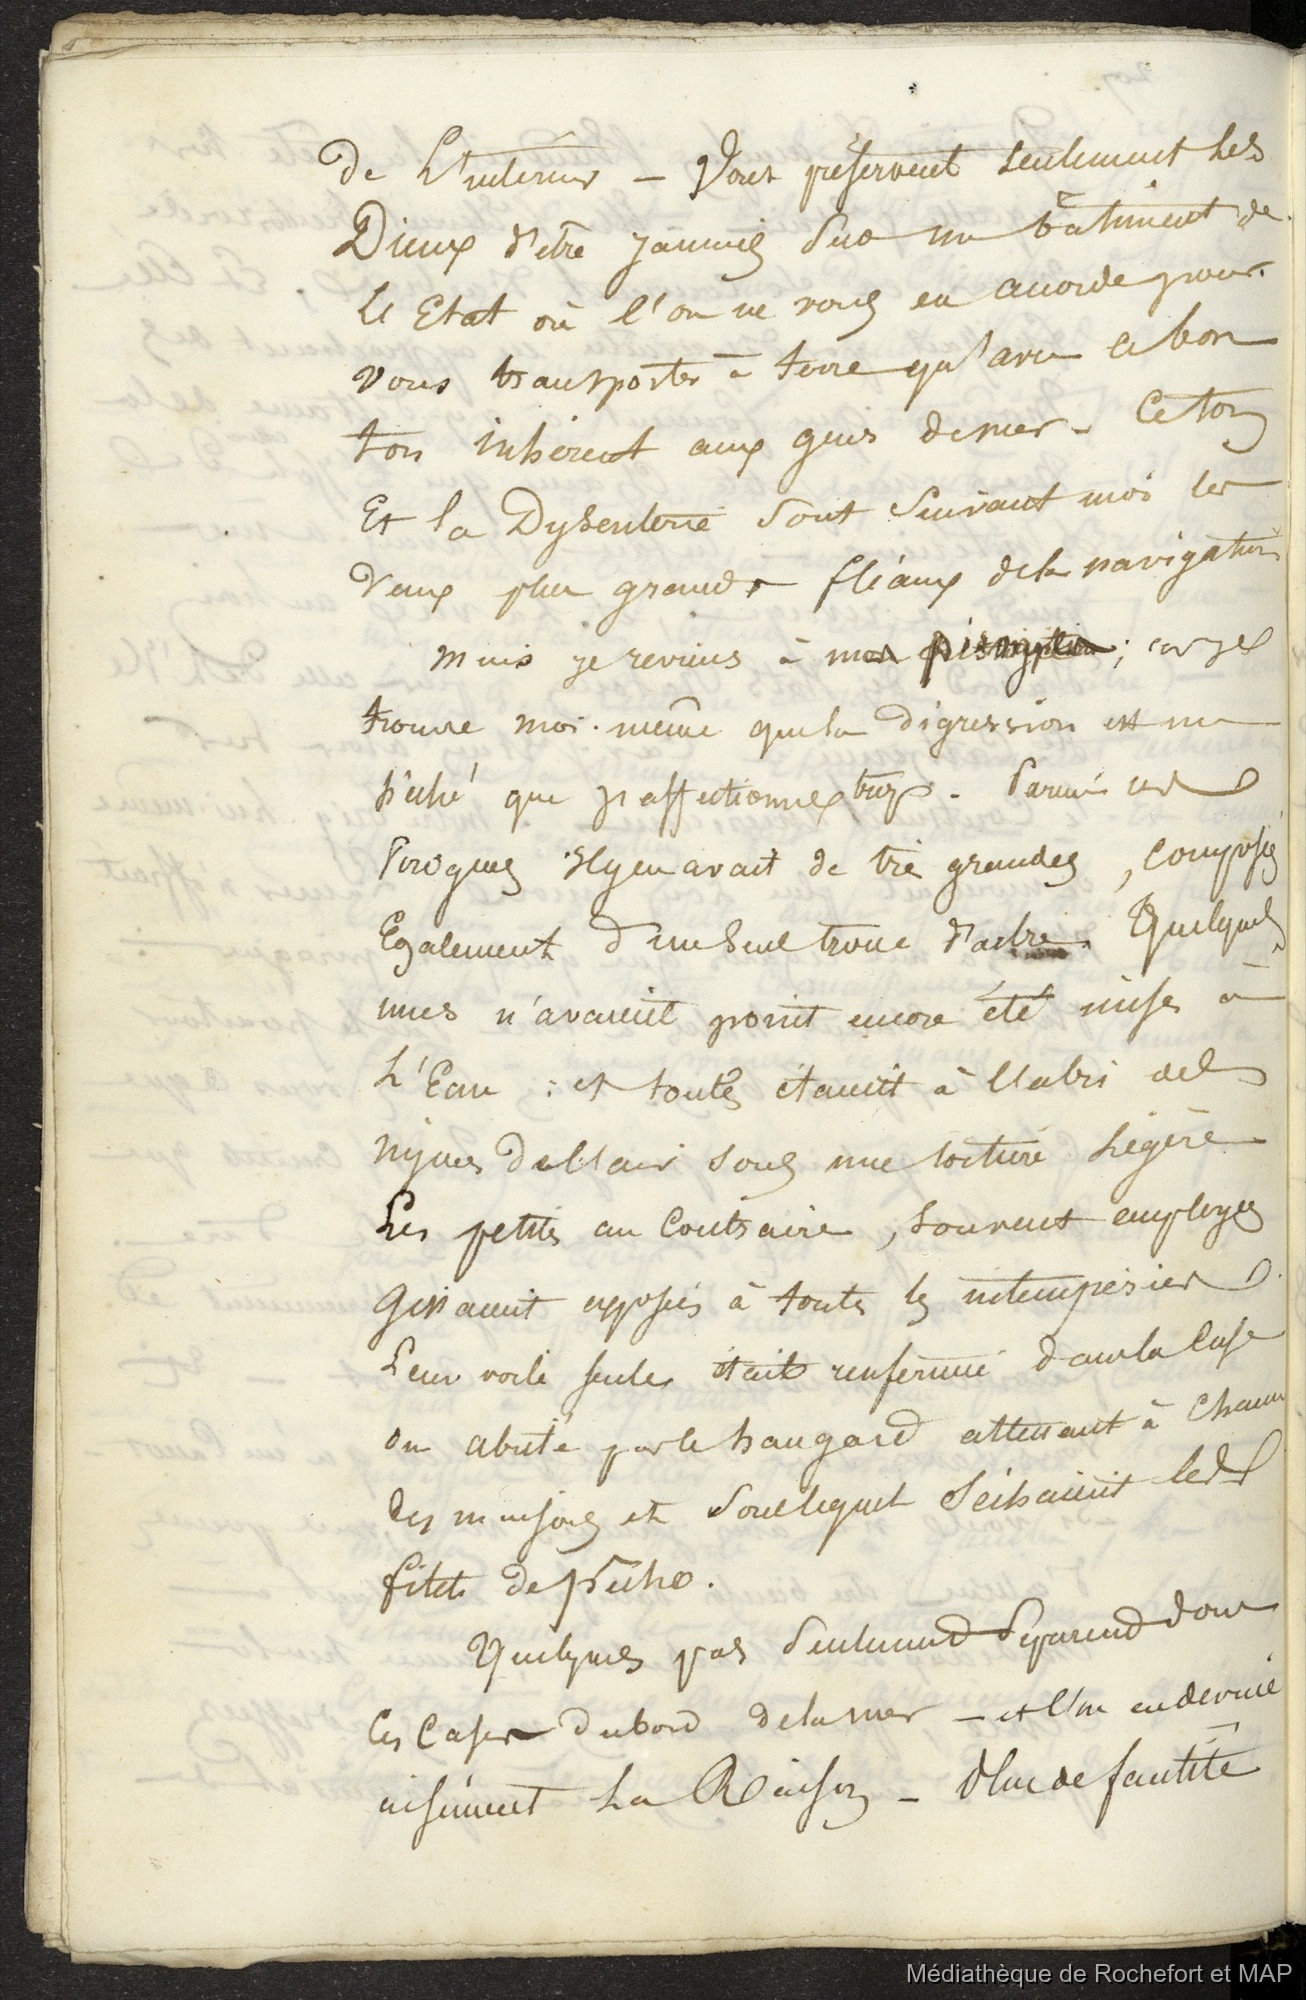 de L'interieur – Vous préservent seulement Les
Dieux d'être jamais Sur un bâtiment de
L'Etat où l'on ne vous en accorde pour
vous transporter à terre qu'avec ce bon
ton inhérent aux gens de mer – Ce ton
Et la Dysenterie Sont Suivant moi les
deux plus grands fléaux de la navigation
mais je reviens à ; car je
trouve moi-même que la digression est un
péché que j'affectionne trop. Parmi ces
Pirogues il y en avait de très grandes, composées
Egalement d'un Seul tronc d'arbre. Quelques
unes n'avaient point encore été mises à
L'Eau : et toutes étaient à l'abri des
injures de l'air sous une toiture Légère
Les petites au Contraire, souvent employées
Gissaient exposées à toutes les intempéries
Leur voile seule était renfermée dans la Case
ou abritée par le hangard attenant à chacune
des maisons et Sous lequel Séchaient les
filets de pêche.
Quelques pas Seulement Séparent donc
Ces Cases du bord de la mer – et l'on en devine
aisément La Raison – Plus de facilité
Médiathèque de Rochefort et MAP